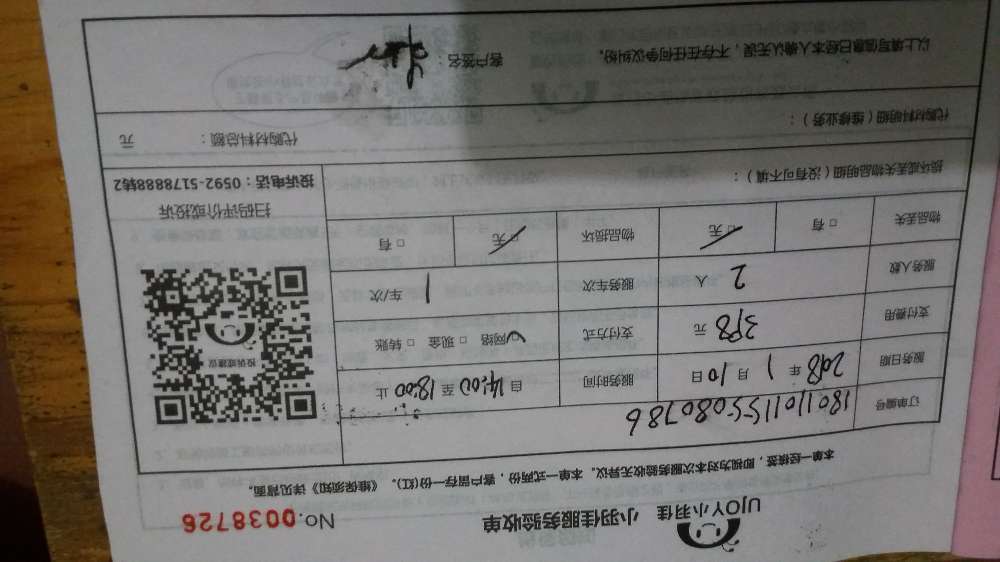 UJOY小羽佳 小羽佳服务验收单 No. 0038726
本单一经核签，即视为对本次服务验收无异议。本单一式两份，客户留存一份(红)。《维保须知》详见背面。
订单编号 180110115508078６
服务日期 2018 年 1 月 10 日 服务时间 自 14:00 至 18:00 止
支付费用 398 元 支付方式 网络 □ 现金 □ 转账
服务人数 2 人 服务车次 1 车/次
物品丢失 □ 有 □ 无 物品损坏 □ 无 □ 有
投诉或建议
扫码评价或投诉
投诉电话：0592-5178888转2
损坏或丢失物品明细（没有可不填）：
代购材料明细（维修业务）： 代购材料总额： 元
以上填写信息已经本人确认无误，不存在任何争议纠纷。 客户签名：